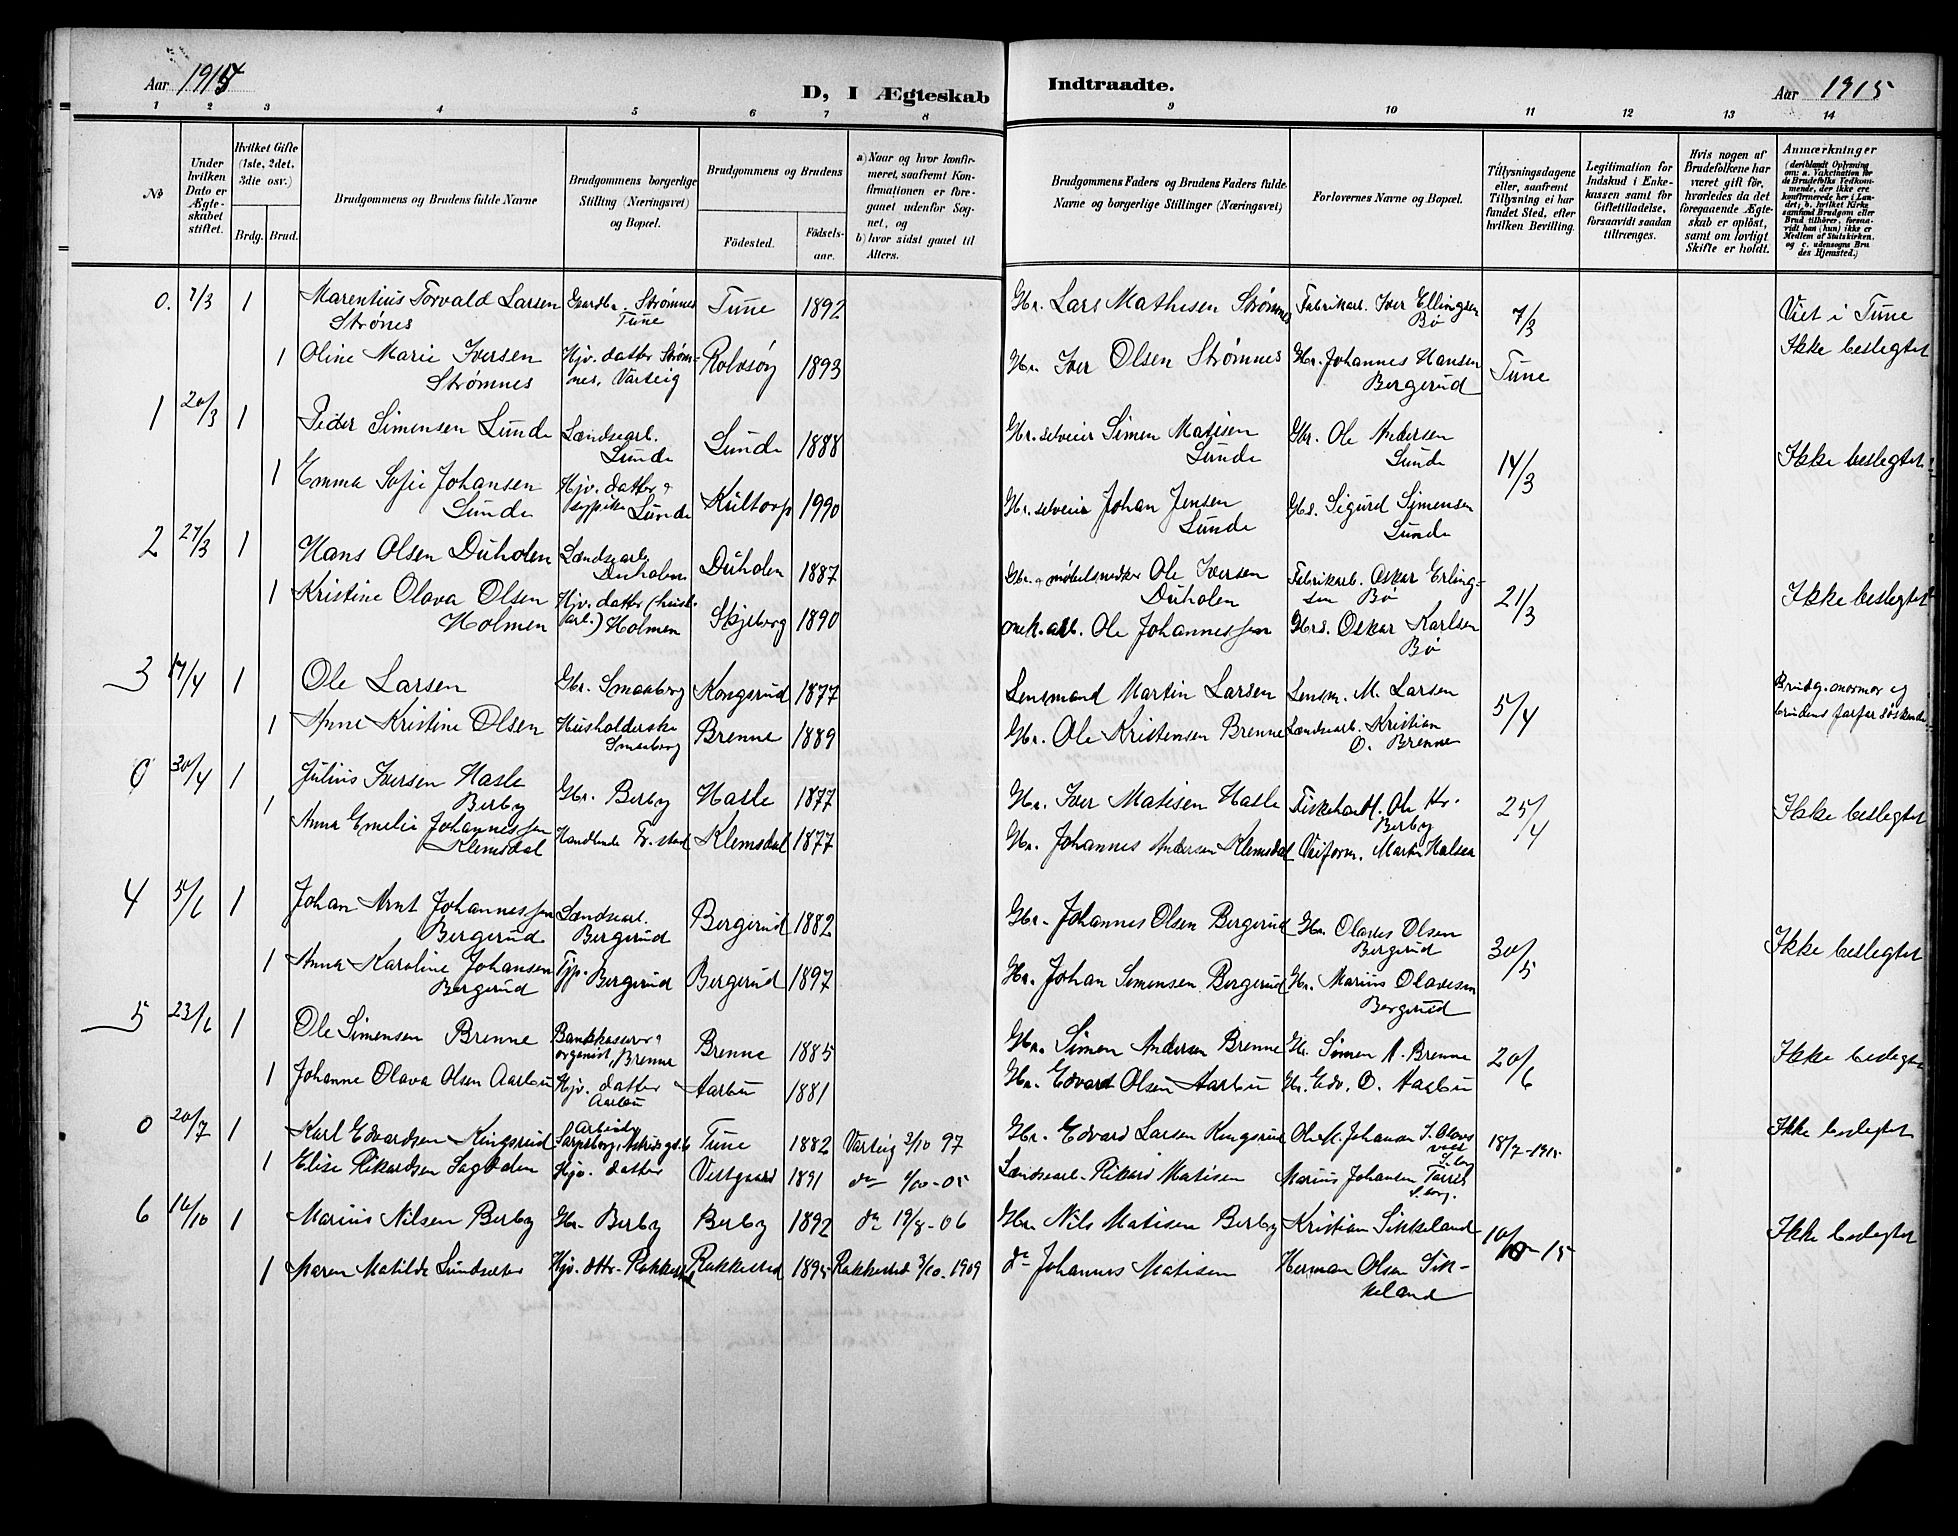 Aar 1915
D, I Ægteskab
Indtraadte.
Aar 1915
1 2 3 4 5 6 7 8 9 10 11 12 13 14
No
Under hvilken Dato er Ægteskabet stiftet.
Hvilket Gifte (1ste, 2det, 3die osv.)
Brdg. Brud.
Brudgommens og Brudens fulde Navne
Brudgommens borgerlige Stilling (Næringsvei) og Bopæl.
Brudgommens og Brudens
Fødested.
Fødsels-aar.
a) Naar og hvor konfirmeret, saafremt Konfirmationen er foregaaet udenfor Sognet, og
b) hvor sidst gaaet til Alters.
Brudgommens Faders og Brudens Faders fulde Navne og borgerlige Stillinger (Næringsvei)
Forlovernes Navne og Bopæl.
Tillysningsdagene eller, saafremt Tillysning ei har fundet Sted, efter hvilken Bevilling.
Legitimation for Indskud i Enkekassen samt for Giftetilladelse, forsaavidt saadan tiltrænges.
Hvis nogen af Brudefolkene har været gift før, hvorledes da det foregaaende Ægteskab er opløst, samt om lovligt Skifte er holdt.
Anmærkninger
(deriblandt Oplysning om: a. Vakcination for de Brudefolks Vedkommende, der ikke ere konfirmerede her i Landet; b. hvilket Kirkesamfund Brudgom eller Brud tilhører, forsaavidt han (hun) ikke er Medlem af Statskirken, og c. udensogns Brudes Hjemsted.)
0. 7/3 1 Marentius Torvald Larsen Strønes Gaardbr. Strømnes Tune Tune 1892 Gbr. Lars Mathisen Strømnes Fabrikarb. Iver Ellingsen Bø 7/3 Viet i Tune
1 Oline Marie Iversen Strømnes Hjv. datter Strømnes, Varteig Rolvsøy 1893 Gbr. Iver Olsen Strømnes Gbr. Johannes Hansen Bergerud Tune Ikke beslegtet
1 20/3 1 Peder Simensen Lunde Landsearb. Lunde Lunde 1888 Gbr. selveier Simen Matisen Lunde Gbr. Ole Andersen Lunde 14/3 Ikke beslegtet
1 Emma Sofie Johansen Lunde Hjv. datter & sypike Lunde Kultorp 1990 Gbr. selveier Johan Jensen Lunde Gbs. Sigurd Simensen Lunde
2 27/3 1 Hans Olsen Duholen Landsearb. Duholen Duholen 1887 Gbr. & møbelsnedker Ole Iversen Duholen Fabrikarb. Oskar Erlingsen Bø 21/3 Ikke beslegtet
1 Kristine Olava Olsen Holmen Hjv. datter Holmen Skjeborg 1890 mek. arb. Ole Johannessen Gbrs. Oskar Karlsen Bø
3 17/4 1 Ole Larsen Gbr. Smaaborg Kongsrud 1877 Lensmand Martin Larsen Lensm. M. Larsen 5/4 Brudg. mormor og brudens farfar søskende
1 Anne Kristine Olsen Husholderske Smaaborg Brenne 1889 Gbr. Ole Kristensen Brenne Landsearb. Kristian O. Brenne
0 30/4 1 Julius Iversen Hasle Berby Gbr. Berby Hasle 1877 Gbr. Iver Matisen Hasle Fiskehandl. Ole Kr. Berby 25/4 Ikke beslegtet
1 Anna Emelie Johannessen Klemsdal Handlende Fr.stad Klemsdal 1877 Gbr. Johannes Andersen Klemsdal Veiform. Martin Halsen
4 5/6 1 Johan Arnt Johannessen Bergerud Landsearb. Bergerud Bergerud 1882 Gbr. Johannes Olsen Bergerud Gbr. Olaves Olsen Bergerud 30/5 Ikke beslegtet
1 Anna Karoline Johansen Bergerud Tjp. Bergerud Bergerud 1897 Gbr. Johan Simensen Bergerud Gbr. Marius Olavesen Bergerud
5 23/6 1 Ole Simensen Brenne Bankkaserer & organist, Brenne Brenne 1885 Gbr. Simen Andersen Brenne Gbr. Simen A. Brenne 20/6 Ikke beslegtet
1 Johanne Olava Olsen Aarbu Hjv. datter Aarbu Aarbu 1881 Gbr. Edvard Olsen Aarbu Gbr. Edv. O. Aarbu
0 20/7 1 Karl Edvardsen Kingsrud Arbeider Sarpsborg, Tune 1882 Varteig 3/10 97 Gbr. Edvard Larsen Kingsrud Ole M. Johansen 18/7-1915 Ikke beslegtet
1 Elise Rikardsen Sagdalen Hjv. datter Vestgaard 1891 do 1/10-05 Landsearb. Rikard Matisen Marius Johansen S.borg.
6 16/10 1 Marius Nilsen Berby Gbr. Berby Berby 1892 do 19/8-06 Gbr. Nils Matisen Berby Kristian Sikkeland 10/10-15 Ikke beslegtet
1 Maren Matilde Lundsæter Hjv. dttr. Rakkestad Rakkestad 1895 Rakkestad 3/10. 1909 do Johannes Matisen Herman Olsen Sikkeland